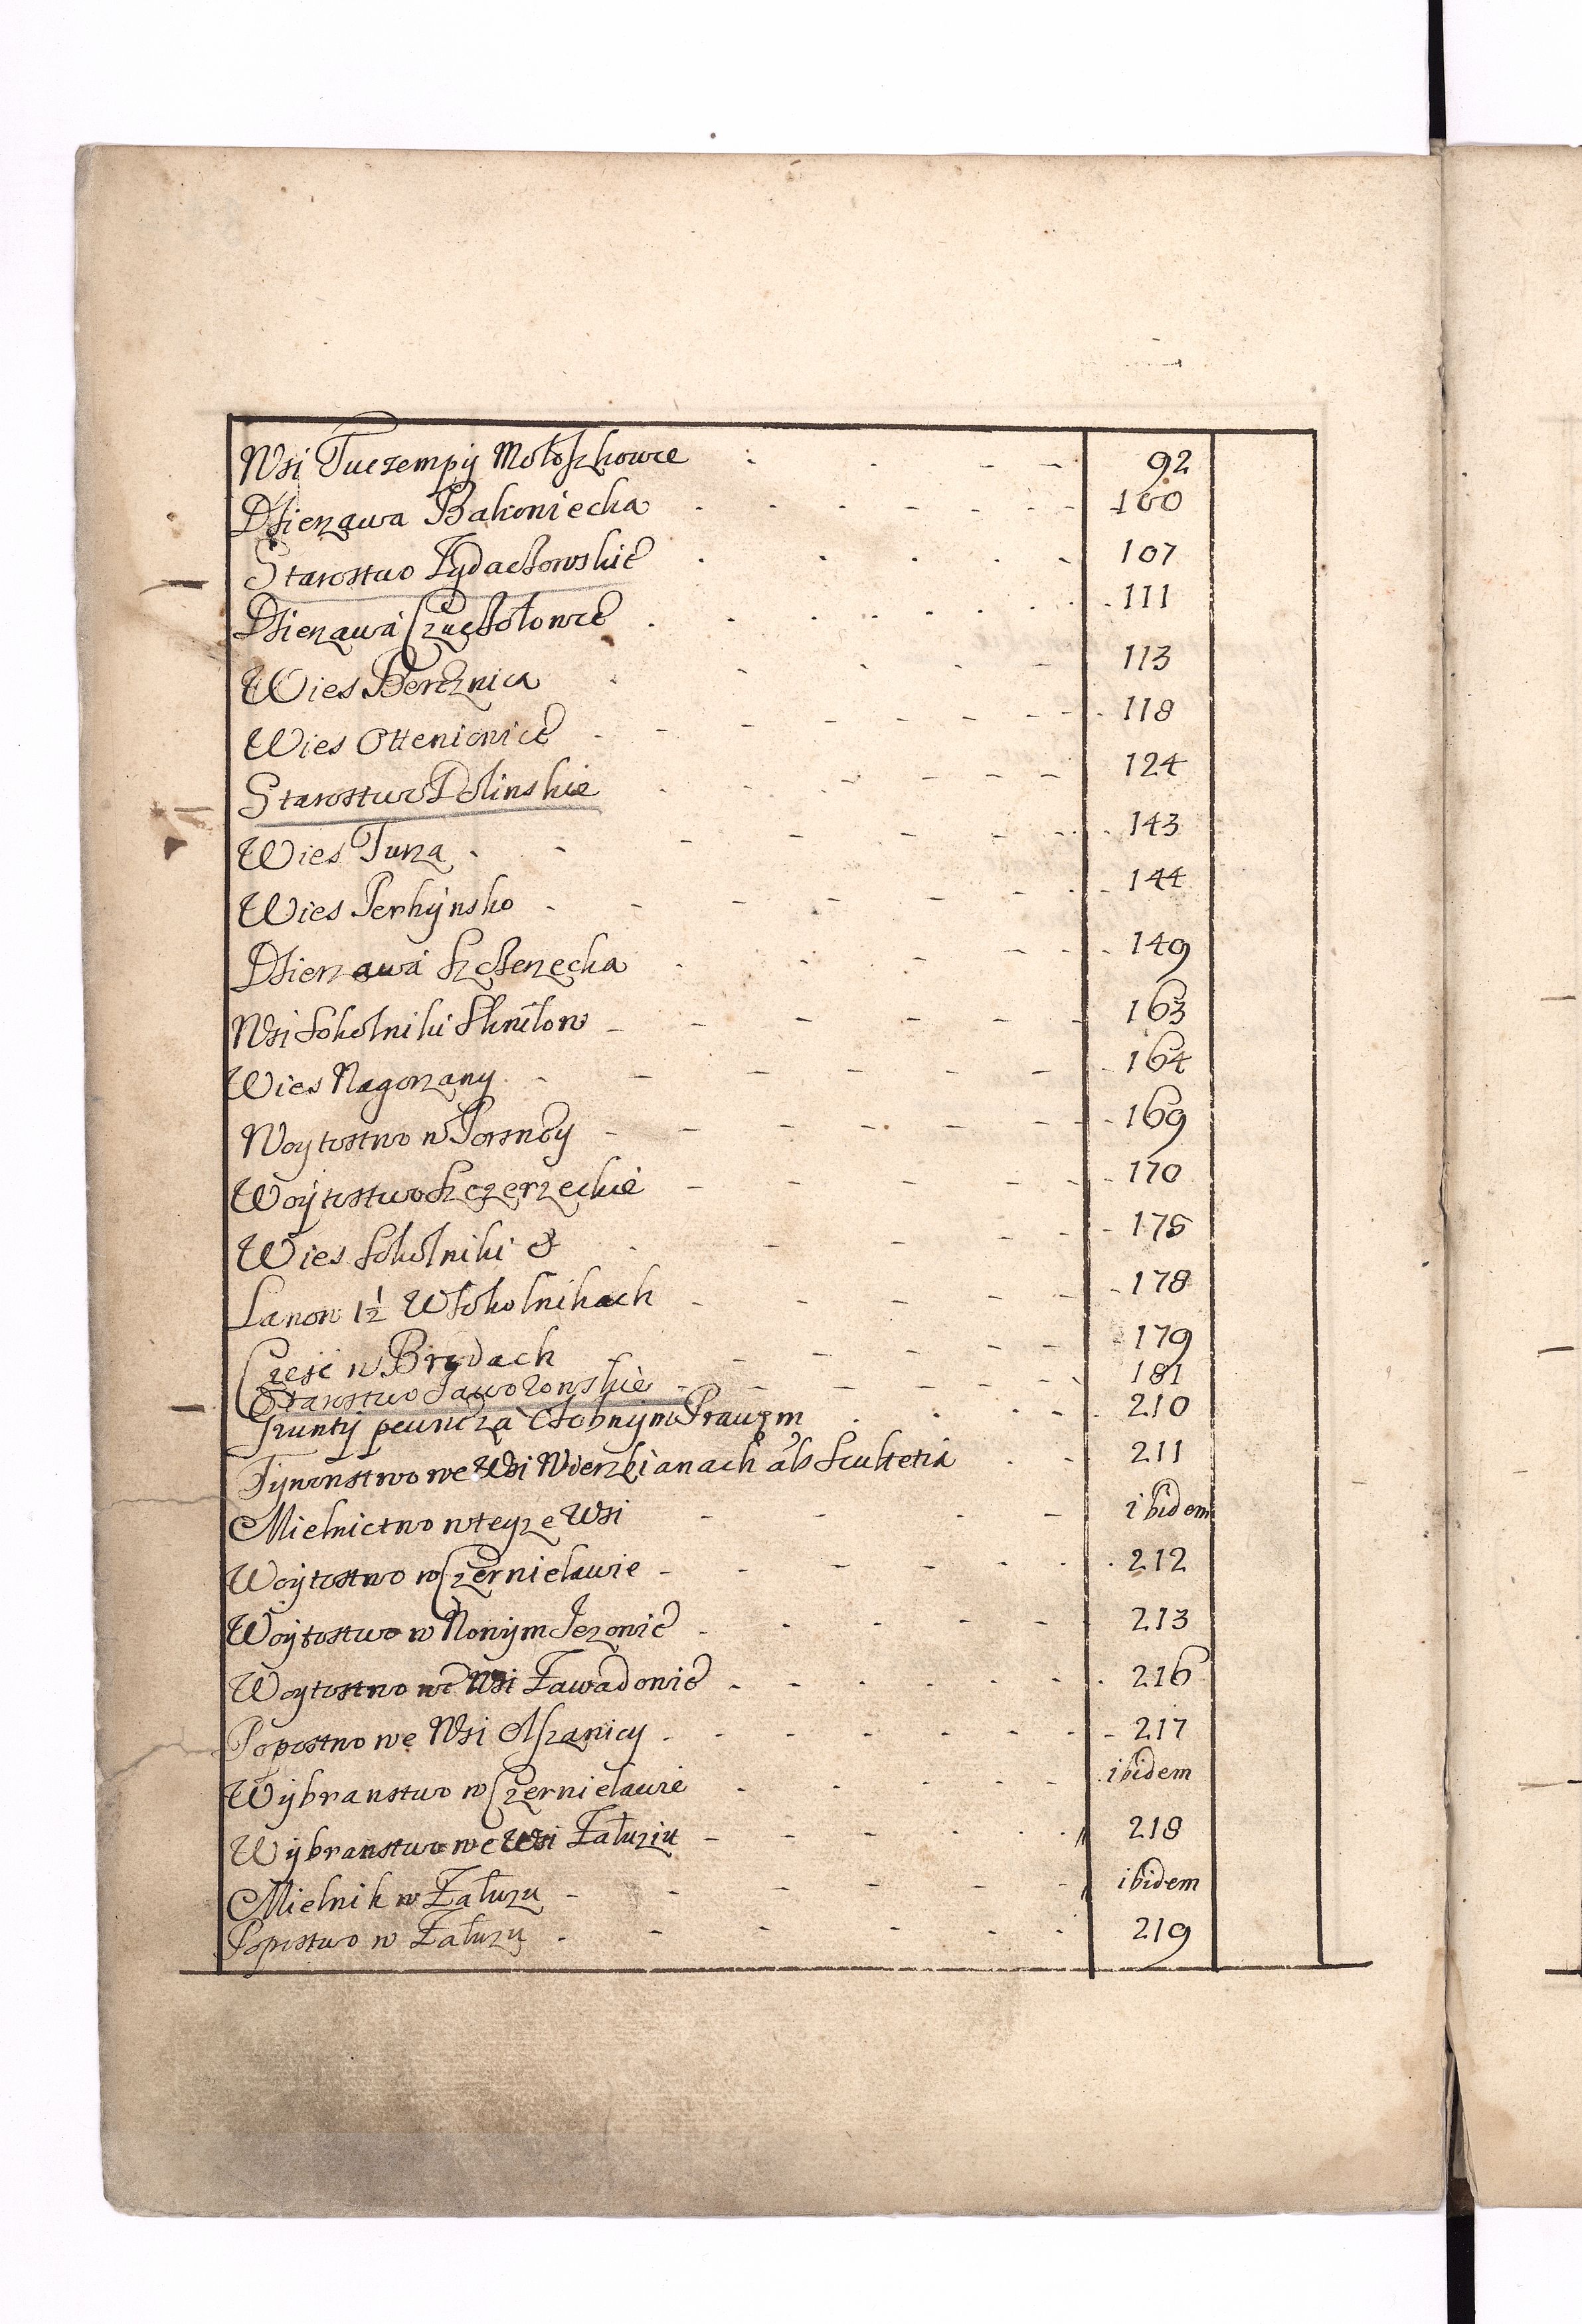 Wsi Tuczempy Mołoszkowce 92
Dzierzawa Bakoniecka 100
Starostwo Zydaczowskie 107
Dzierzawa Czuczołowce 111
Wies Bereznica 113
Wies Ottenionice 118
Starostwo Dolinskie 124
Wies Turza 143
Wies Perhynsko 144
Dzierzawa Szczerzecka 149
Wsi Sokolniki Skniłow 163
Wies Nagorzany 164
Woytostwo w Porsnoy 169
Woytostwo Szczerzeckie 170
Wies Sokolniki & 175
Lanow 1½ W Sokolnikach 178
Czesc w Brzdach 179
Starostwo Jaworowskie 181
Grunty pewne za Osobnym Prawem 210
Tywonstwo we Wsi Wierzbianach als Scultetia 211
Mielnictwo w teyze Wsi ibidem
Woytostwo w Czernielawie 212
Woytostwo w Nowym Jezowie 213
Woytostwo we Wsi Zawadowie 216
Popostwo we Wsi Olszanicy 217
Wybranstwo w Czernielawie ibidem
Wybranstwo we Wsi Załuziu 218
Mielnik w Załuzu ibidem
Popostwo w Załuzu 219